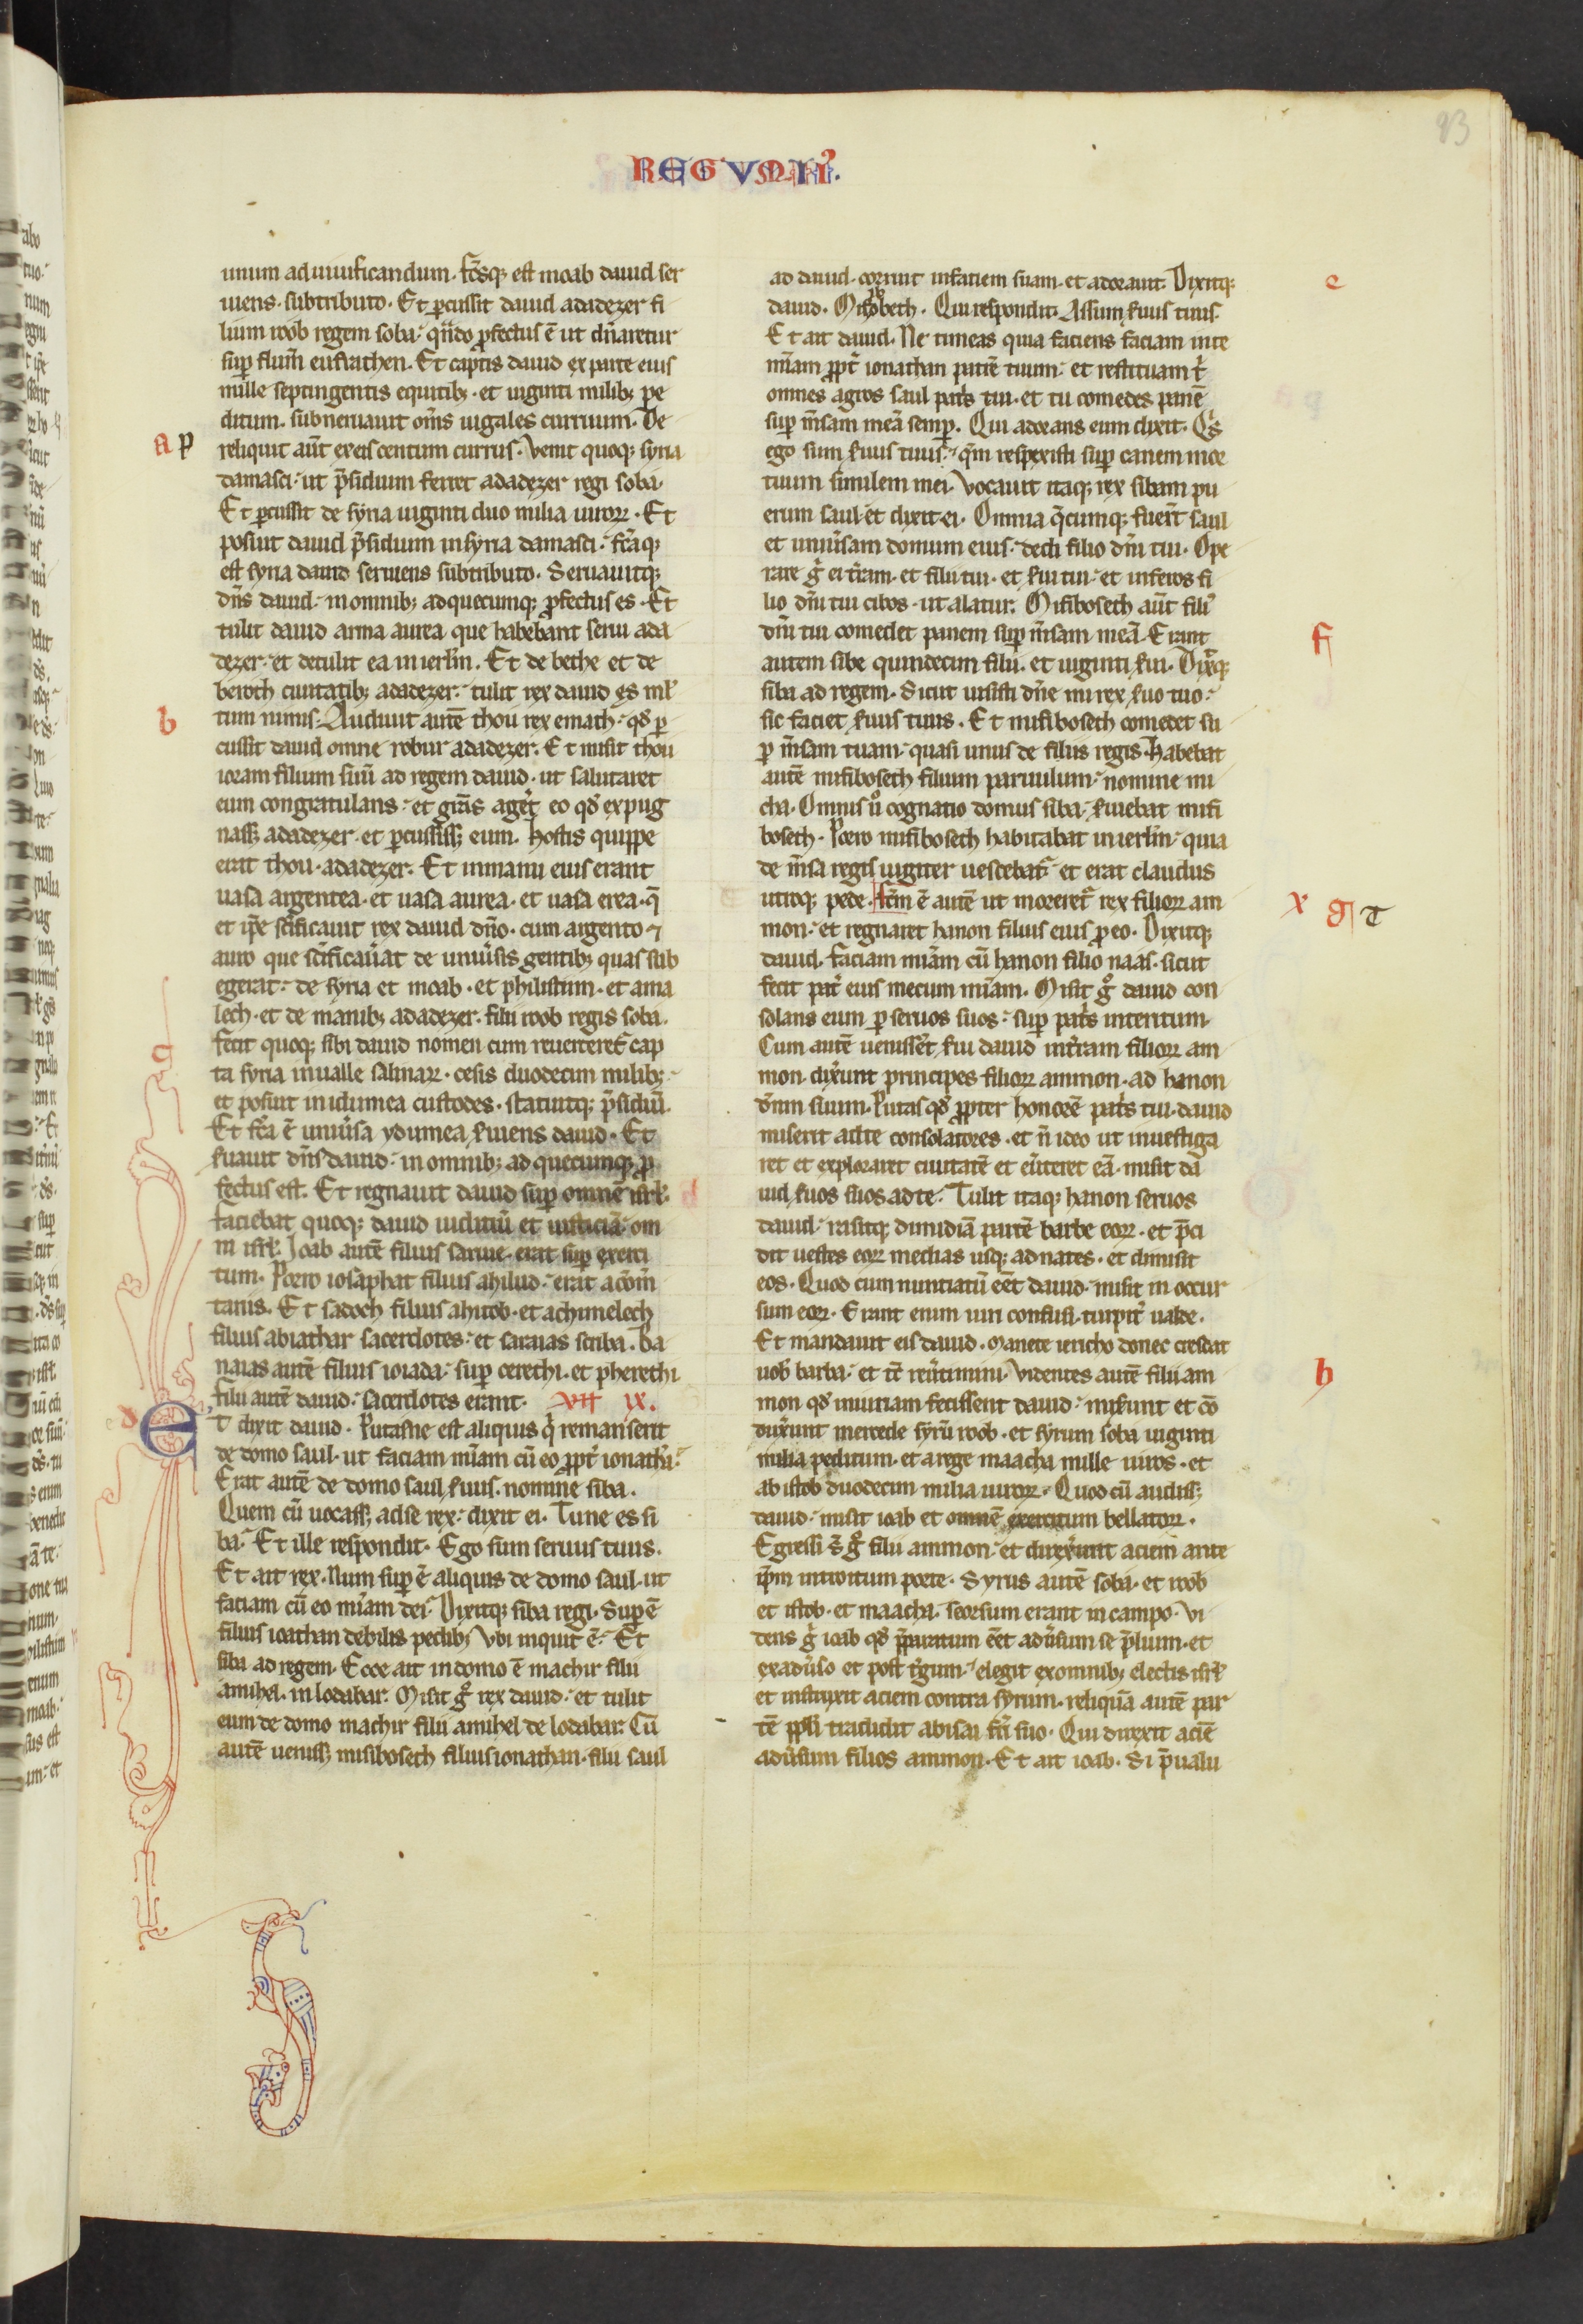 93
REGVM II.
unum ad uiuificandum. fc̄sq; est moab dauid ser
uiens. sub tributo. Et ꝑcussit dauid adadezer fi
lium roob regem soba. qn̄do ꝓfectus ē ut dn̄aretur
suꝑ flum̄ eufrathen. Et captis dauid ex parte eius
mille septingentis equitib; et uiginti milib; pe
ditum. subneruauit om̄s iugales curruum. De
a p
reliquit aūt ex eis centum currus. Venit quoq; syria
damasci. ut p̄sidium ferret adadezer regi soba.
Et ꝑcussit de syria uiginti duo milia uiroꝝ. Et
posuit dauid p̄sidium in syria damasci. fc̄aq;
est syria dauid seruiens sub tributo. Seruauitq;
dn̄s dauid. in omnib; ad quecumq; ꝓfectus es. Et
tulit dauid arma aurea que habebant serui ada
dezer. et detulit ea in ierlm̄. Et de bethe et de
beroth ciuitatib; adadezer. tulit rex dauid es ml̄
b
tum nimis. Audiuit autē thou rex emath. qd̄ ꝑ
cussit dauid omne robur adadezer. Et misit thou
ioram filium suū ad regem dauid. ut salutaret
eum congratulans. et gr̄as ageret eo qd̄ expug
nass; adadezer. et ꝑcussiss; eum. hostis quippe
erat thou. adadezer. Et in manu eius erant
uasa argentea. et uasa aurea. et uasa erea. q̄
et ip̄e sc̄ificauit rex dauid dn̄o. cum argento ⁊
auro que sc̄ificau̓at de uniu̓sis gentib; quas sub
egerat. de syria et moab. et philistiim. et ama
lech. et de manub; adadezer. filii roob regis soba.
c
fecit quoq; sibi dauid nomen cum reuerteret̄ cap
ta syria in ualle salinaꝝ. cesis duodecim milib;
et posuit in idumea custodes. statuitq; p̄sidiū.
Et fc̄a ē uniu̓sa ydumea s̓uiens dauid. Et
s̓uauit dn̄s dauid. in omnib; ad quecumq; ꝓ
fectus est. Et regnauit dauid suꝑ omnē isrl̄.
faciebat quoq; dauid iudiciū et iusticiā. om
ni isrl̄. Ioab autē filius saruie. erat suꝑ exerci
tum. Porro iosaphat filius ahilud. erat a com̄
tariis. Et sadoch filius ahitob. et achimelech
filius abiathar sacerdotes. et saraias scriba. Ba
naias autē filius ioiada. suꝑ cerethi. et pherethi.
filii autē dauid. sacerdotes erant. VII IX.
d
Et dixit dauid. Putasne est aliquis q̓ remanserit
de domo saul. ut faciam mīam cū eo ꝓpt̓ ionathā.
Erat autē de domo saul. s̓uus. nomine siba.
Quem cū uocass; ad se rex. dixit ei. Tune es si
ba. Et ille respondit. Ego sum seruus tuus.
Et ait rex. Num suꝑ ē aliquis de domo saul. ut
faciam cū eo mīam dei. Dixitq; siba regi. Suꝑ ē
filius ioathan debilis pedib; Vbi inquit ē. Et
siba ad regem. Ecce ait in domo ē machir filii
amihel. in lodabar. Misit g̊ rex dauid. et tulit
eum de domo machir filii amihel de lodabar. Cū
autē ueniss; misibosech filius ionathan. filii saul
ad dauid. corruit in faciem suam. et adorauit. Dixitq; e
dauid. Misibosech. Qui respondit. Assum s̓uus tuus.
Et ait dauid. Ne timeas quia faciens faciam in te
mīam ꝓpt̓ ionathan patrē tuum. et restituam t̓
omnes agros saul pat̓s tui. et tu comedes panē
suꝑ m̄sam meā semꝑ. Qui adorans eum dixit. Q̓s
ego sum s̓uus tuus. qm̄ respexisti suꝑ canem mor
tuum similem mei. Vocauit itaq; rex sibam pu
erum saul. et dixit ei. Omnia q̄cumq; fuer̄t saul
et uniu̓sam domum eius. dedi filio dn̄i tui. Ope
rare g̊ ei t̓ram. et filii tui. et s̓ui tui. et inferes fi
lio dn̄i tui cibos. ut alatur. Misibosech aūt fili᷒
dn̄i tui comedet panem suꝑ m̄sam meā. Erant
f
autem sibe quindecim filii. et uiginti s̓ui. Dixitq;
siba ad regem. Sicut iussisti dn̄e mi rex s̓uo tuo.
sic faciet s̓uus tuus. Et misibosech comedet su
ꝑ m̄sam tuam. quasi unus de filiis regis. Habebat
autē misibosech filium paruulum. nomine mi
cha. Omnis u̓o cognatio domus siba. s̓uiebat misi
bosech. Porro misibosech habitabat in ierlm̄. quia
de m̄sa regis iugiter uescebat̄. et erat claudus
utroq; pede. fc̄m ē autē ut moreret̄ rex filioꝝ am
x g t
mon. et regnaret hanon filius eius ꝓ eo. Dixitq;
dauid. faciam mīam cū hanon filio naas. sicut
fecit pat̓ eius mecum mīam. Misit g̊ dauid con
solans eum ꝑ seruos suos. suꝑ pat̓s interitum.
Cum autē uenissēt s̓ui dauid in t̓ram filioꝝ am
mon. dixerunt principes filioꝝ ammon. ad hanon
dn̄m suum. Putas qd̄ ꝓpter honorē pat̓s tui. dauid
miserit ad te consolatores. et n̄ ideo ut inuestiga
ret et exploraret ciuitatē et eu̓teret eā. misit da
uid s̓uos suos ad te. Tulit itaq; hanon seruos
dauid. rasitq; dimidiā partē barbe eoꝝ. et p̄ci
dit uestes eoꝝ medias usq; ad nates. et dimisit
eos. Quod cum nuntiatū eēt dauid. misit in occur
sum eoꝝ. Erant enim uiri confusi. turpit̓ ualde.
Et mandauit eis dauid. Manete iericho donec crescat
uob̄ barba. et tc̄ reu̓timini. Videntes autē filii am
h
mon qd̄ iniuriam fecissent dauid. mis̓unt et cō
dux̓unt mercede syrū roob. et syrum soba uiginti
milia peditum. et a rege maacha mille uiros. et
ab istob duodecim milia uiroꝝ. Quod cū audiss;
dauid. misit ioab et omnē exercitum bellatoꝝ.
Egressi s̄ g̊ filii ammon. et direxerunt aciem ante
ip̄m introitum porte. Syrus autē soba. et roob
et istob. et maacha. seorsum erant in campo. Vi
dens g̊ ioab qd̄ p̄paratum eēt adu̓sum se p̄lium. et
ex adu̓so et post t̓gum. elegit ex omnib; electis isrl̄
et instruxit aciem contra syrum. reliquā autē par
tē ppl̄i tradidit abisai fr̄i suo. Qui direxit aciē
adu̓sum filios ammon. Et ait ioab. Si p̄ualu